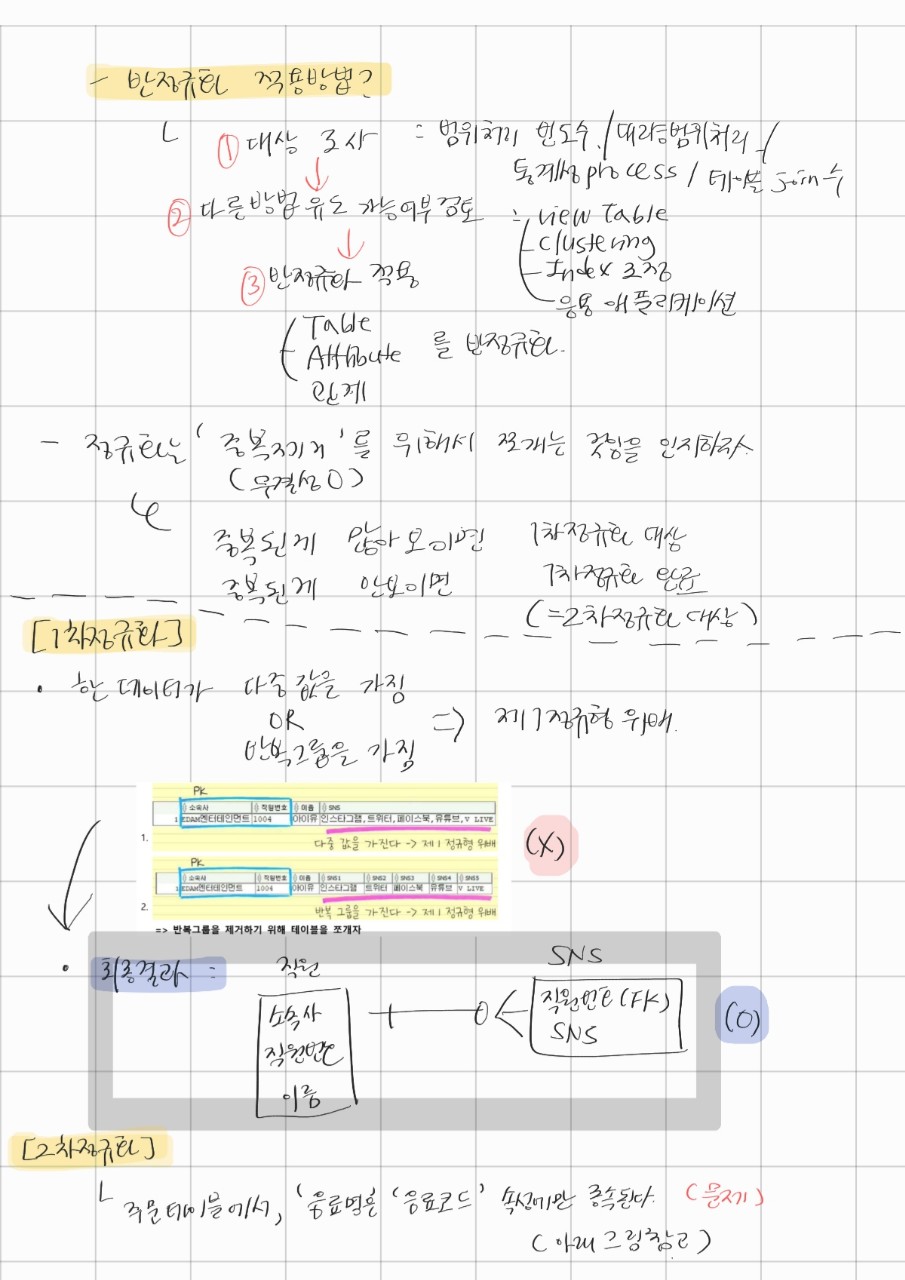 - 반정규화 적용방법?
└ ① 대상 조사 : 범위처리 빈도수 / 대량범위처리 /
통계성 process / 테이블 join 수
② 다른방법 유도 가능여부 검토 : view Table
Clustering
Index 조정
응용 애플리케이션
③ 반정규화 적용
Table
Attribute 를 반정규화.
관계
- 정규화는 '중복제거'를 위해서 쪼개는 것임을 인지하자.
(무결성 O)
중복된게 많아보이면 1차정규화 대상
중복된게 안보이면 1차정규화 완료
(=2차정규화 대상)
[1차정규화]
• 한 데이터가 다중 값을 가짐
OR => 제1정규형 위배.
반복그룹을 가짐
PK
소속사 직원번호 이름 SNS
1 EDAM엔터테인먼트 1004 아이유 인스타그램,트위터,페이스북,유튜브,V LIVE
1. 다중 값을 가진다 -> 제 1 정규형 위배
(X)
PK
소속사 직원번호 이름 SNS1 SNS2 SNS3 SNS4 SNS5
1 EDAM엔터테인먼트 1004 아이유 인스타그램 트위터 페이스북 유튜브 V LIVE
2. 반복 그룹을 가진다 -> 제 1 정규형 위배
=> 반복그룹을 제거하기 위해 테이블을 쪼개자
• 최종결과 :
직원
소속사
직원번호
이름
SNS
직원번호(FK)
SNS
(O)
[2차정규화]
└ 주문테이블에서, '음료명은 '음료코드' 속성에만 종속된다. (문제)
(아래 그림참고)